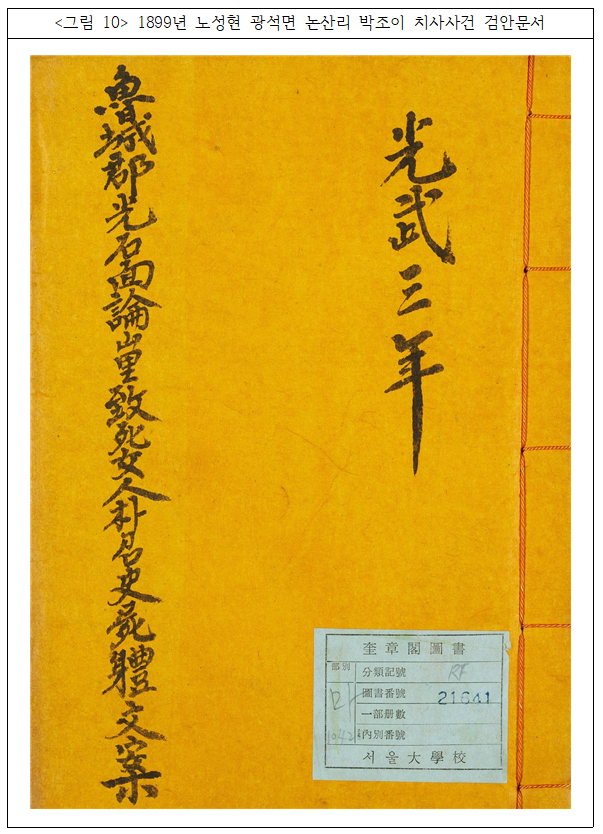 <그림 10> 1899년 노성현 광석면 논산리 박조이 치사사건 검안문서
光武三年
魯城郡光石面論山里致死女人朴召史屍體文案
奎章閣圖書
部別
分類記號
圖書番號 21641
一部冊數
內別番號
서울大學校